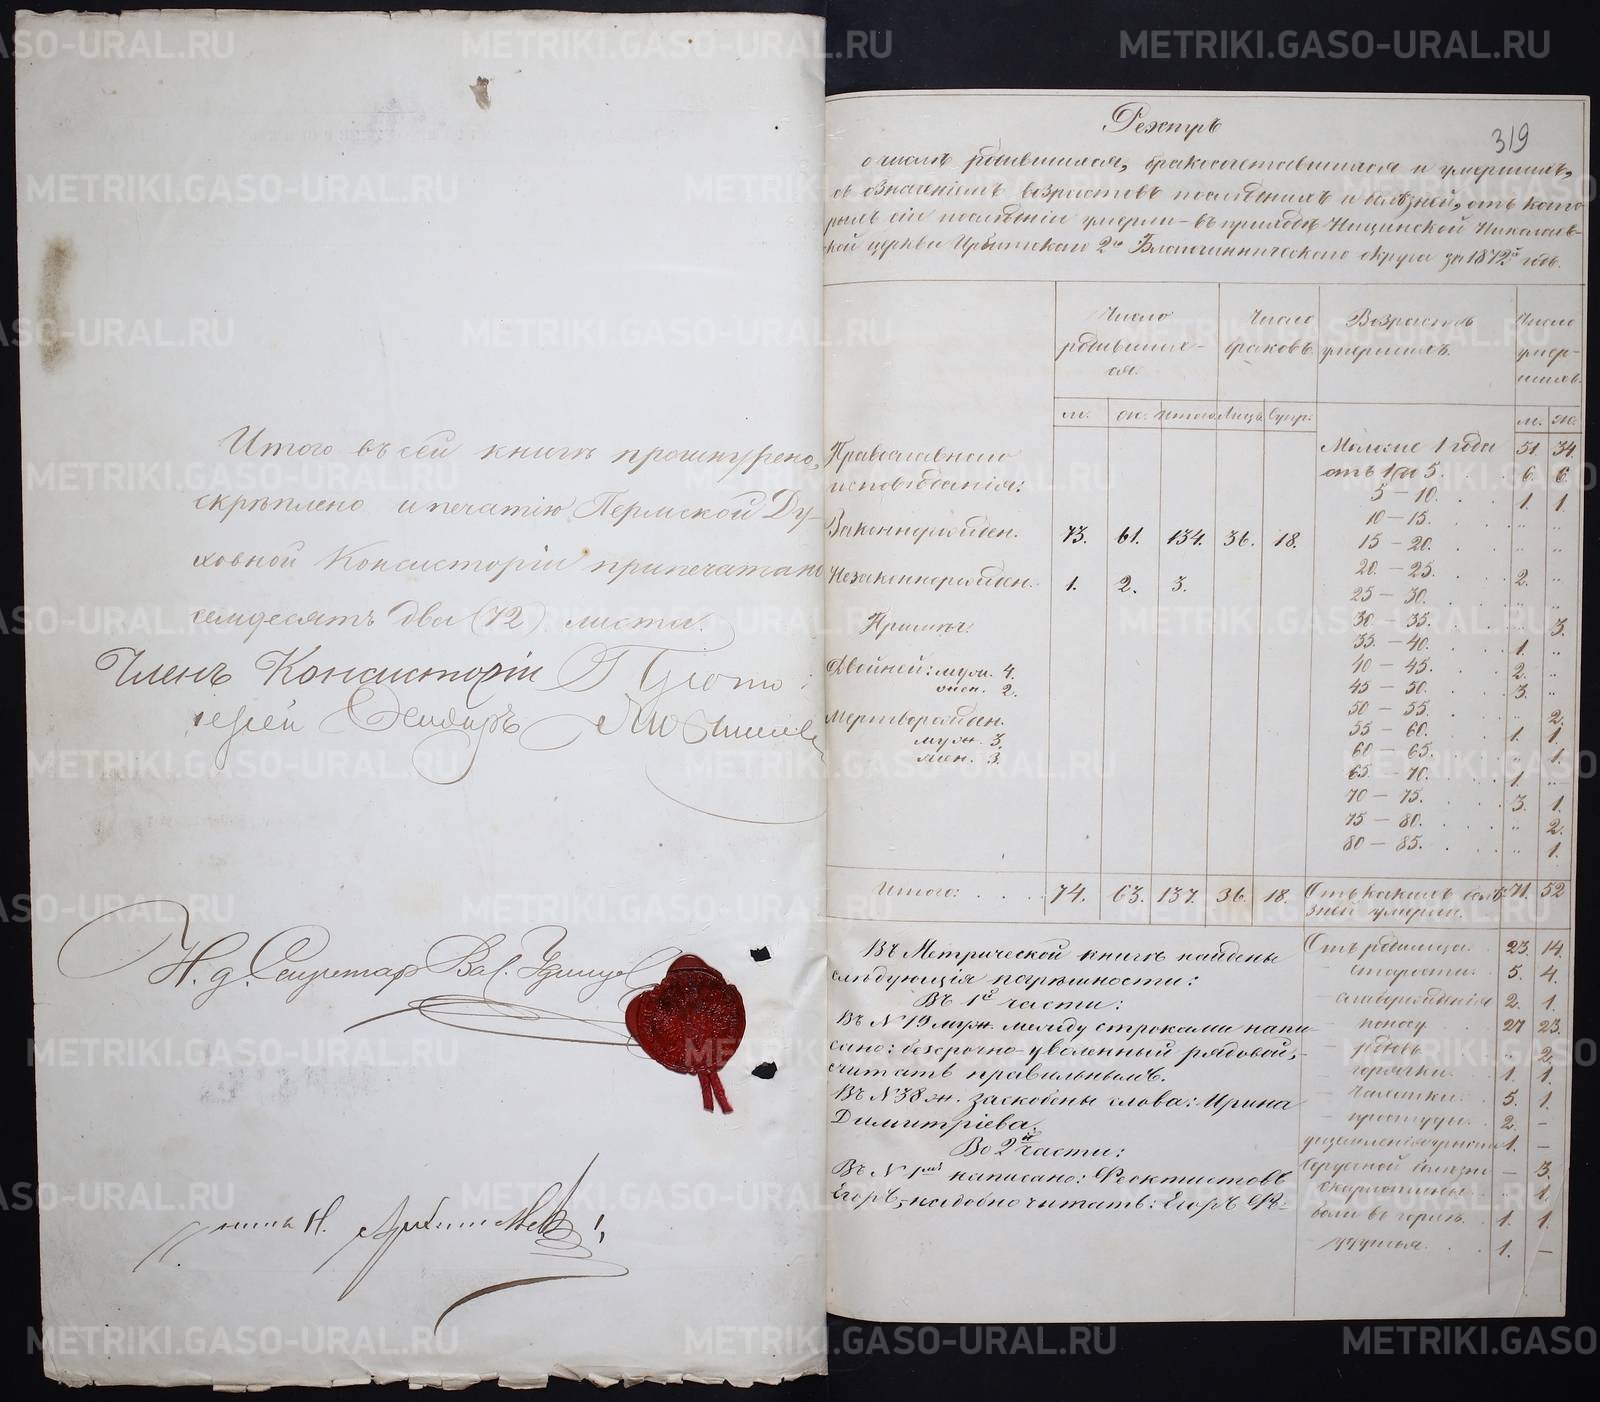 Итого въ сей книгѣ прошнурено,
скрѣплено и печатію Пермской Ду-
ховной Консисторіи припечатано
семдесятъ два (72) листа.
Членъ Консисторіи Прото-
іерей
И. д. Секретаря Вас.
319
Реэстръ
о числѣ родившихся, бракосочетавшихся и умершихъ,
съ означеніемъ возрастовъ послѣднихъ и болѣзней, отъ кото-
рыхъ сіи послѣдніе умерли – въ приходѣ Ницинской Николаев-
ской церкви Ирбитскаго 2го Благочинническаго округа за 1872й годъ.
Число родившихся. Число браковъ. Возрастъ умершихъ. Число умершихъ.
м. ж. Итого Лица Супр. м. ж.
Православнаго
исповѣданія:
Законнорожден. 73. 61. 134. 36. 18.
Незаконнорожден. 1. 2. 3.
Примѣч:
Двойней: муж. 4.
жен. 2.
Мертворожден.
муж. 3.
жен. 3.
Моложе 1 года 51. 34.
отъ 1 до 5. 6. 6.
5 – 10. 1. 1.
10 – 15. „ „
15 – 20. „ „
20 – 25. 2. „
25 – 30. „ „
30 – 35. „ 3.
35 – 40. 1. „
40 – 45. 2. „
45 – 50. 3. „
50 – 55. „ 2.
55 – 60. 1. 1.
60 – 65. „ 1.
65 – 70. 1. „
70 – 75. 3. 1.
75 – 80. „ 2.
80 – 85. „ 1.
Итого: 74. 63. 137. 36. 18. Отъ какихъ болѣ- 71. 52
зней умерли.
Въ Метрической книгѣ найдены
слѣдующія погрѣшности:
Въ 1й части:
Въ № 19 муж. между строками напи-
сано: безсрочно-уволенный рядовой,
считать правильнымъ.
Въ № 38 ж. заскоблены слова: Ирина
Димитріева.
Во 2й части:
Въ № 1мъ написано: Феоктистовъ
Егоръ, надобно читать: Егоръ Фе-
Отъ родимца 23. 14.
– старости 5. 4.
– слаборожденія 2. 1.
– поносу 27 23.
– родовъ „ 2.
– горячки 1. 1.
– чахотки 5. 1.
– простуды 2. –
1. –
– 3.
скарлатины „ 1.
боли въ горлѣ 1. 1.
удушья 1. –
METRIKI.GASO-URAL.RU